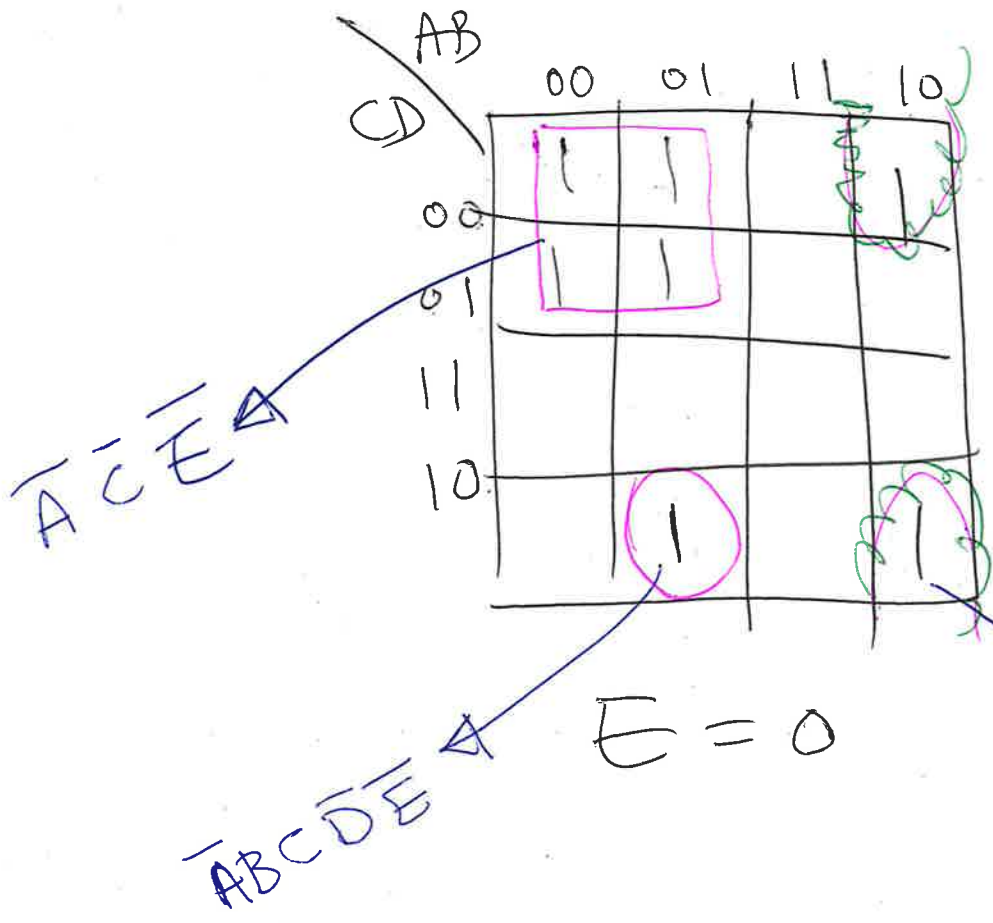 AB
CD
00 01 11 10
00 1 1 1
01 1 1
11
10 1 1
A̅ C̅ E̅
E = 0
A̅BCD̅E̅